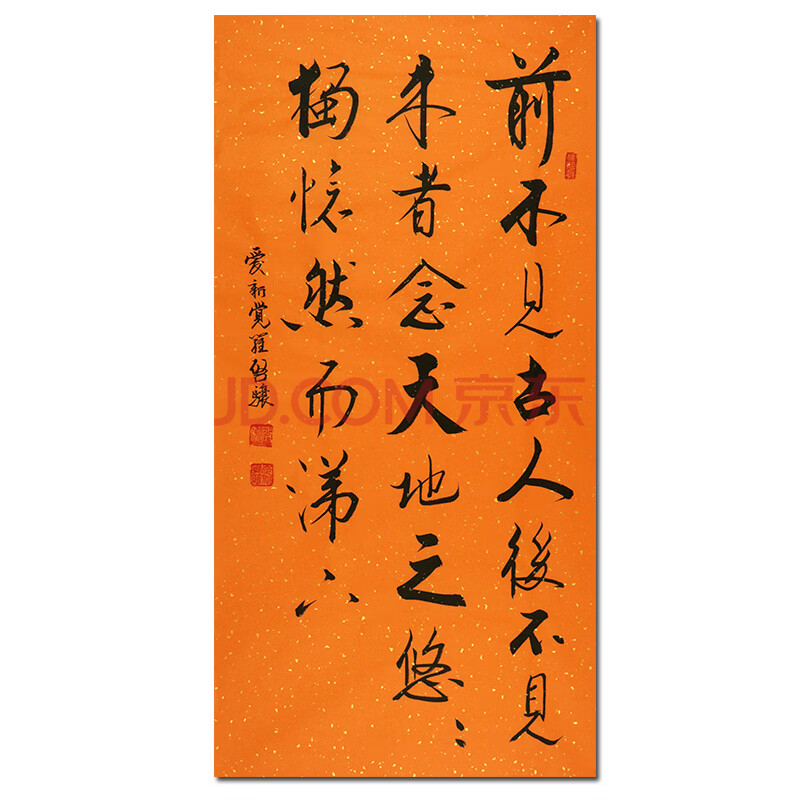 前不見古人後不見
来者念天地之悠々
獨愴然而涕下
愛新覚羅啓驤
JD.COM 京东